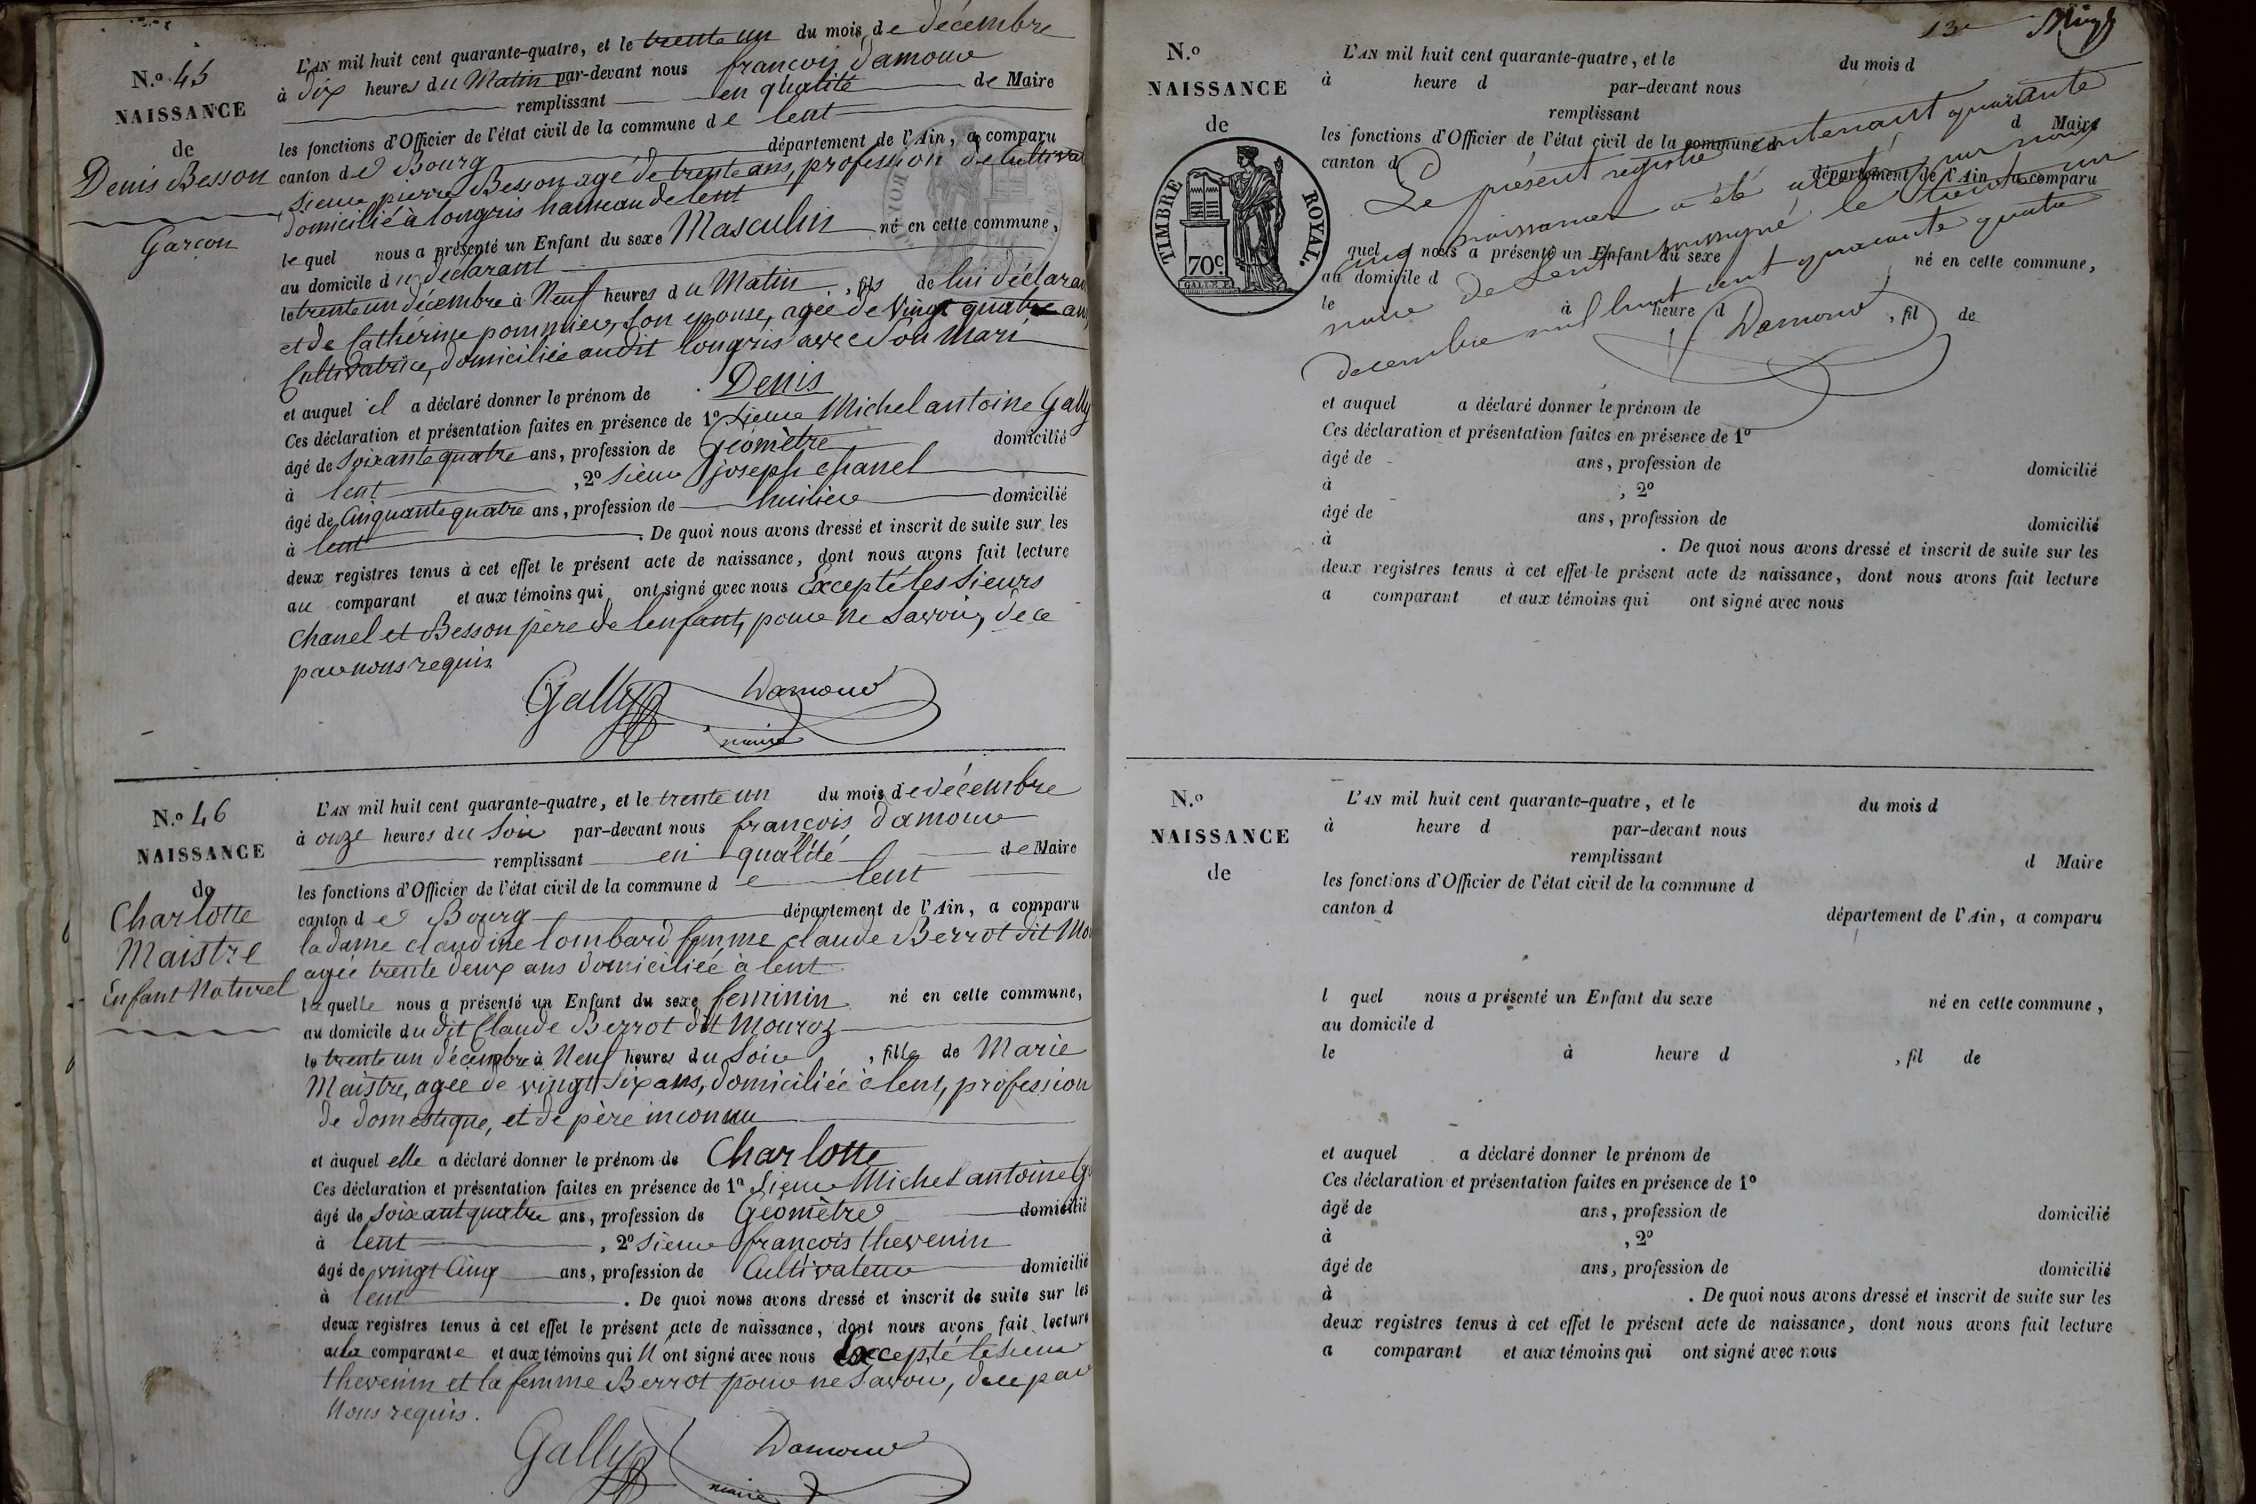 N.º 45
NAISSANCE
de
Denis Besson
Garçon
L'AN mil huit cent quarante-quatre, et le trente un du mois de décembre
à dix heures du Matin par-devant nous françois damour
remplissant en qualité de Maire
les fonctions d'Officier de l'état civil de la commune de lent
canton de Bourg département de l'Ain, a comparu
sieur pierre Besson agé de trente ans, profession de Cultivat
domicilié à longris hameau de lent
lequel nous a présenté un Enfant du sexe Masculin né en cette commune,
au domicile du déclarant
le trente un décembre à Neuf heures du Matin, fils de lui déclarant
et de Cathérine pommier, Son epouse, agée de Vingt quatre ans
Cultivatrice, domiciliée audit longris avec Son Mari
et auquel il a déclaré donner le prénom de Denis
Ces déclaration et présentation faites en présence de 1º sieur Michel antoine Gally
âgé de Soixante quatre ans, profession de Géomètre domicilié
à lent, 2º sieur joseph chanel
âgé de Cinquante quatre ans, profession de huilier domicilié
à lent. De quoi nous avons dressé et inscrit de suite sur les
deux registres tenus à cet effet le présent acte de naissance, dont nous avons fait lecture
au comparant et aux témoins qui ont signé avec nous Excepté les Sieurs
Chanel et Besson père de lenfant, pour ne Savoir, de ce
par nous requis
Gally Damour
maire
N.º 46
NAISSANCE
de
Charlotte
Maistre
Enfant Naturel
L'AN mil huit cent quarante-quatre, et le trente un du mois de décembre
à onze heures du Soir par-devant nous françois damour
remplissant en qualité de Maire
les fonctions d'Officier de l'état civil de la commune de lent
canton de Bourg département de l'Ain, a comparu
la dame claudine lombard femme claude Berrot dit Mou
agée trente deux ans domiciliée à lent
laquelle nous a présenté un Enfant du sexe feminin né en cette commune,
au domicile dudit Claude Berrot dit Mouroz
le trente un décembre à Neuf heures du Soir, fille de Marie
Maistre, agée de vingt Six ans, domiciliée à lent, profession
de domestique, et de père inconnu
et auquel elle a déclaré donner le prénom de Charlotte
Ces déclaration et présentation faites en présence de 1º sieur Michel antoine G
âgé de Soixant quatre ans, profession de Géomètre domicilié
à lent, 2º sieur françois thevenin
âgé de vingt Cinq ans, profession de Cultivateur domicilié
à lent. De quoi nous avons dressé et inscrit de suite sur les
deux registres tenus à cet effet le présent acte de naissance, dont nous avons fait lecture
à la comparante et aux témoins qui ont signé avec nous Excepté le Sieur
thevenin et la femme Berrot pour ne Savoir, de ce par
Nous requis.
Gally Damour
maire
13e
N.º
NAISSANCE
de
TIMBRE ROYAL.
70c
L'AN mil huit cent quarante-quatre, et le du mois d
à heure d par-devant nous
remplissant d Maire
les fonctions d'Officier de l'état civil de la commune d
canton d département de l'Ain, a comparu
Le présent registre contenant quarante
cinq naissances a été arrêté par nous
maire de Lent soussigné le trente un
decembre mil huit cent quarante quatre
Damour
quel nous a présenté un Enfant du sexe né en cette commune,
au domicile d
le à heure d, fil de
et auquel a déclaré donner le prénom de
Ces déclaration et présentation faites en présence de 1º
âgé de ans, profession de domicilié
à, 2º
âgé de ans, profession de domicilié
à. De quoi nous avons dressé et inscrit de suite sur les
deux registres tenus à cet effet le présent acte de naissance, dont nous avons fait lecture
a comparant et aux témoins qui ont signé avec nous
N.º
NAISSANCE
de
L'AN mil huit cent quarante-quatre, et le du mois d
à heure d par-devant nous
remplissant d Maire
les fonctions d'Officier de l'état civil de la commune d
canton d département de l'Ain, a comparu
l quel nous a présenté un Enfant du sexe né en cette commune,
au domicile d
le à heure d, fil de
et auquel a déclaré donner le prénom de
Ces déclaration et présentation faites en présence de 1º
âgé de ans, profession de domicilié
à, 2º
âgé de ans, profession de domicilié
à. De quoi nous avons dressé et inscrit de suite sur les
deux registres tenus à cet effet le présent acte de naissance, dont nous avons fait lecture
a comparant et aux témoins qui ont signé avec nous